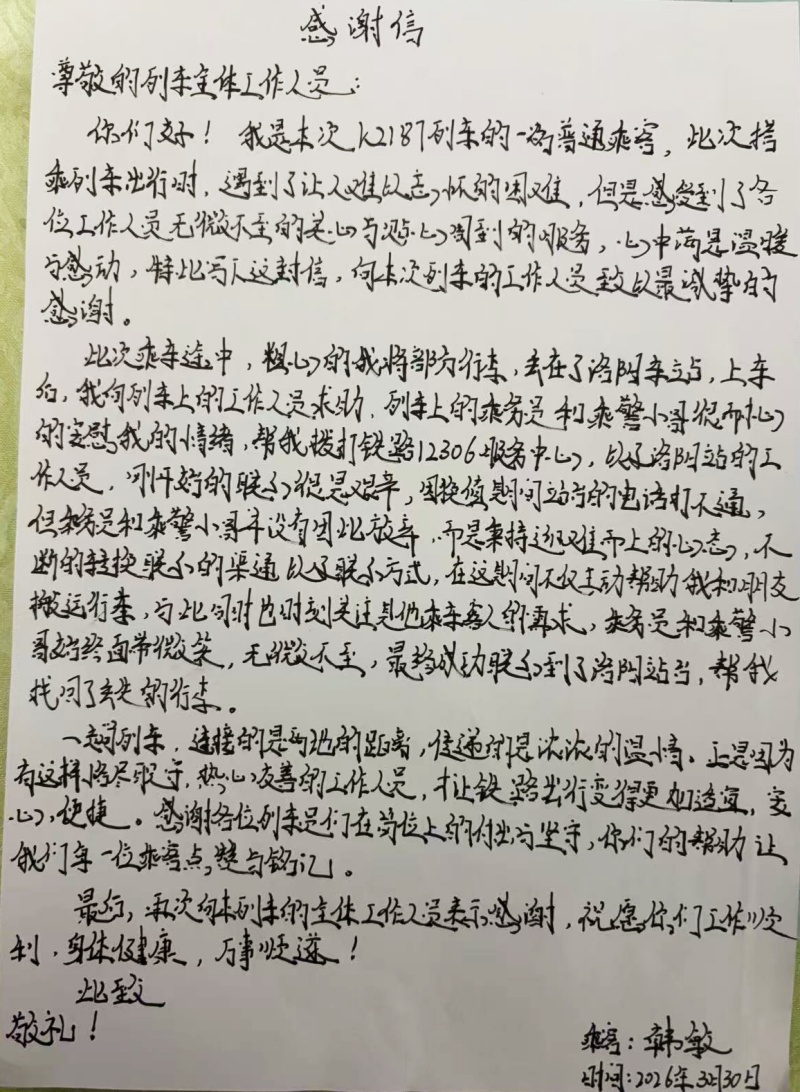 感谢信
尊敬的列车全体工作人员：
你们好！我是本次K2187列车的一名普通乘客，此次搭
乘列车出行时，遇到了让人难以忘怀的困难，但是感受到了各
位工作人员无微不至的关心与贴心周到的服务，心中满是温暖
与感动，特此写下这封信，向本次列车的工作人员致以最诚挚的
感谢。
此次乘车途中，粗心的我将部分行李，丢在了洛阳车站，上车
后，我向列车上的工作人员求助，列车上的乘务员和乘警小哥很耐心
的安慰我的情绪，帮我拨打铁路12306服务中心，以及洛阳站的工
作人员，刚开始的联系很是艰辛，因换值期间站台的电话打不通，
但乘务员和乘警小哥并没有因此放弃，而是秉持迎难而上的心态，不
断的转换联系的渠道以及联系方式，在这期间不仅主动帮助我和朋友
搬运行李，与此同时也时刻关注其他乘车客人的需求，乘务员和乘警小
哥始终面带微笑，无微不至，最终成功联系到了洛阳站台，帮我
找回了丢失的行李。
一趟列车，连接的是两地的距离，传递的是浓浓的温情。正是因为
有这样恪尽职守，热心友善的工作人员，才让铁路出行变得更加适宜，安
心，便捷。感谢各位列车员们在岗位上的付出与坚守，你们的帮助让
我们每一位乘客点赞与铭记。
最后，再次向本列车的全体工作人员表示感谢，祝愿你们工作顺
利，身体健康，万事顺遂！
此致
敬礼！
乘客：韩敏
时间：2026年3月30日